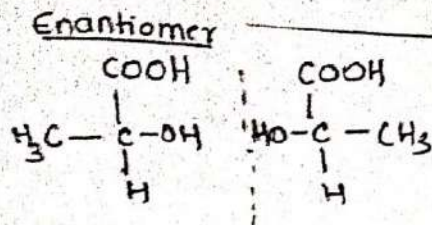 Enantiomer
COOH COOH
H₃C – C – OH HO – C – CH₃
H H